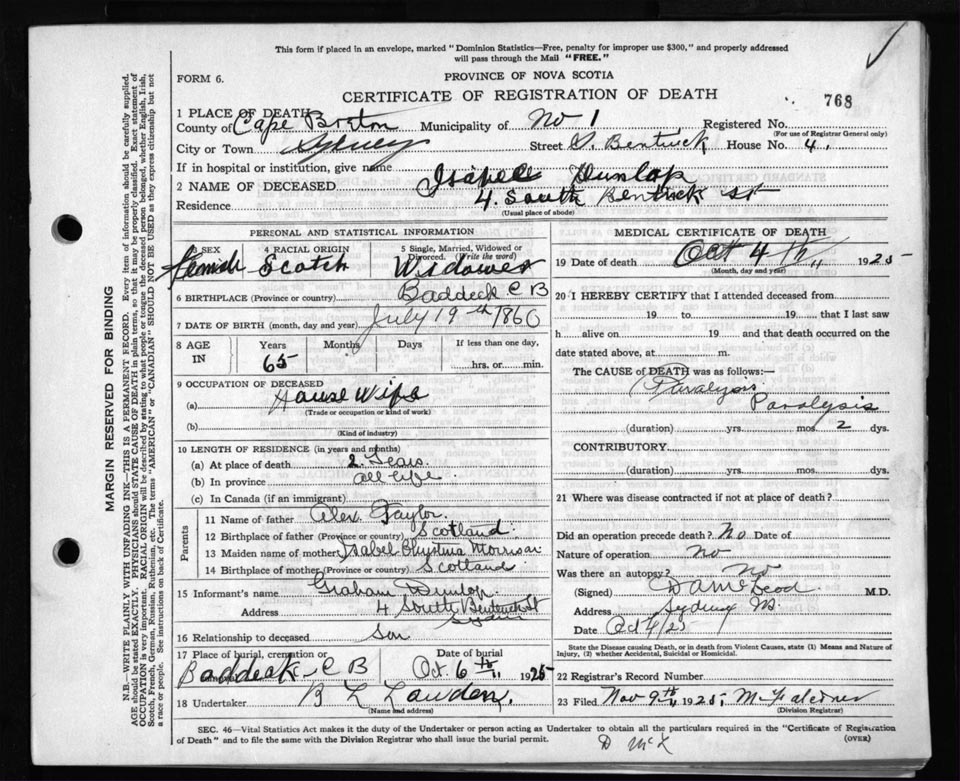 This form if placed in an envelope, marked "Dominion Statistics—Free, penalty for improper use $300," and properly addressed
will pass through the Mail "FREE."
FORM 6.
PROVINCE OF NOVA SCOTIA
CERTIFICATE OF REGISTRATION OF DEATH
768
1 PLACE OF DEATH
County of Cape Breton Municipality of No 1 Registered No.
(For use of Registrar General only)
City or Town Sydney Street S. Bentick House No. 4.
If in hospital or institution, give name
2 NAME OF DECEASED Isabell Dunlop
Residence 4. South Bentick St
(Usual place of abode)
PERSONAL AND STATISTICAL INFORMATION
3 SEX 4 RACIAL ORIGIN 5 Single, Married, Widowed or Divorced. (Write the word)
Female Scotch Widower
6 BIRTHPLACE (Province or country) Baddeck C B
7 DATE OF BIRTH (month, day and year) July 19th 1860
8 AGE IN Years Months Days If less than one day,
65 hrs. or min.
9 OCCUPATION OF DECEASED
(a) House Wife
(Trade or occupation or kind of work)
(b)
(Kind of industry)
10 LENGTH OF RESIDENCE (in years and months)
(a) At place of death 2. Years
(b) In province all life
(c) In Canada (if an immigrant)
Parents
11 Name of father Alex Taylor
12 Birthplace of father (Province or country) Scotland
13 Maiden name of mother Isabel Chystina Morrison
14 Birthplace of mother (Province or country) Scotland
15 Informant's name Graham Dunlop
Address 4 South Bentick St
Sydney
16 Relationship to deceased Son
17 Place of burial, cremation or Date of burial
Baddeck C B Oct 6th 1925
18 Undertaker B L Lowden
(Name and address)
MEDICAL CERTIFICATE OF DEATH
19 Date of death Oct 4th 1925
(Month, day and year)
20 I HEREBY CERTIFY that I attended deceased from
19 to 19 that I last saw
h alive on 19 and that death occurred on
date stated above, at m.
The CAUSE of DEATH was as follows:
Paralysis
Paralysis
(duration) yrs. mos. 2 dys.
CONTRIBUTORY.
(duration) yrs. mos. dys.
21 Where was disease contracted if not at place of death?
Did an operation precede death? No Date of
Nature of operation No
Was there an autopsy? No
(Signed) D A McLeod M.D.
Address Sydney NS.
Date Oct 6/25
State the Disease causing Death, or in death from Violent Causes, state (1) Means and Nature of
Injury, (2) whether Accidental, Suicidal or Homicidal.
22 Registrar's Record Number
23 Filed Nov 9th 1925. M Falconer
(Division Registrar)
SEC. 46—Vital Statistics Act makes it the duty of the Undertaker or person acting as Undertaker to obtain all the particulars required in the "Certificate of Registration
of Death" and to file the same with the Division Registrar who shall issue the burial permit.
(OVER)
MARGIN RESERVED FOR BINDING
N.B.—WRITE PLAINLY WITH UNFADING INK—THIS IS A PERMANENT RECORD. Every item of information should be carefully supplied.
AGE should be stated EXACTLY. PHYSICIANS should STATE CAUSE OF DEATH in plain terms, so that it may be properly classified. Exact statement of
OCCUPATION is very important. RACIAL ORIGIN will be described by stating to what people or tongue the deceased person belonged, whether English, Irish,
Scotch, French, German, Russian, Ruthenian, etc. The terms "AMERICAN" or "CANADIAN" SHOULD NOT BE USED as they express citizenship but not
a race or people. See instructions on back of Certificate.